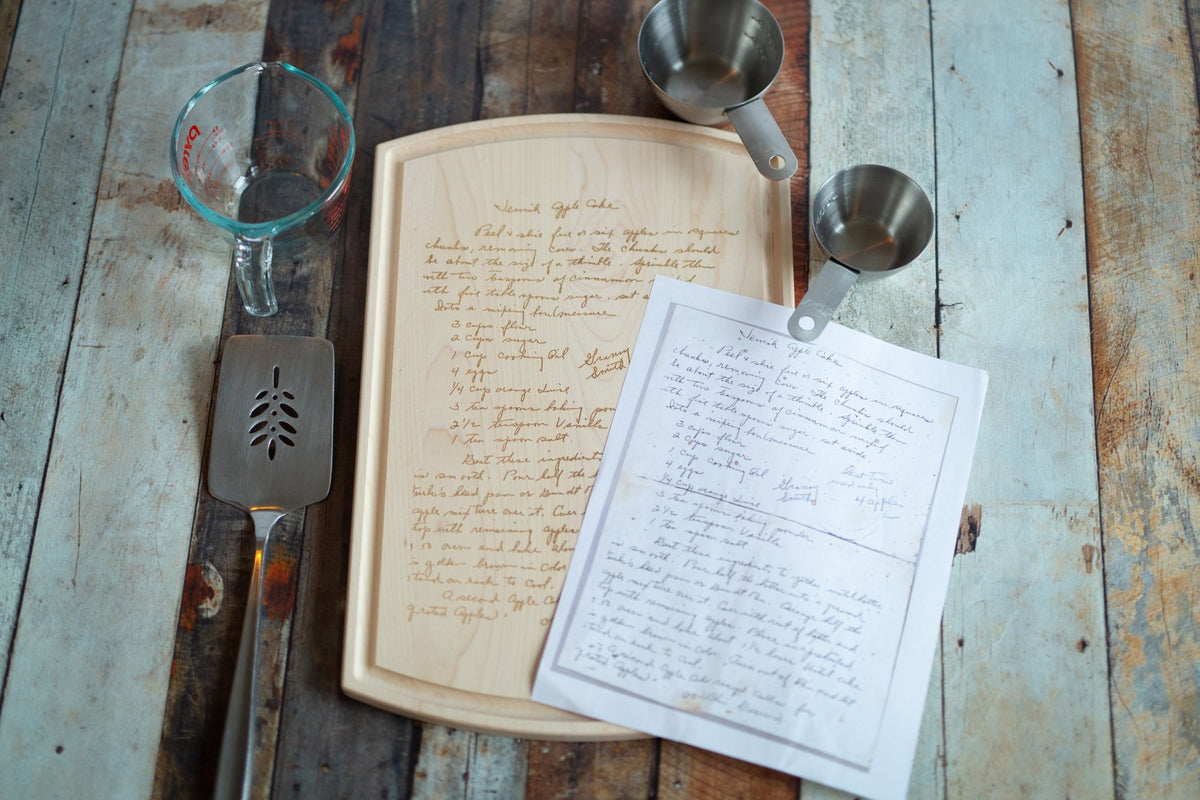 Jewish Apple Cake
Peel & slice five or six apples in squares
chunks, removing core. The chunks should
be about the size of a thimble. Sprinkle them
with two teaspoons of cinnamon
with five tablespoons sugar. set a
Into a mixing bowl measure
3 cups flour
2 cups sugar
1 cup cooking Oil
Granny
Smith
4 eggs
1/4 cup orange Juice
3 tea spoons baking pow
2 1/2 teaspoon Vanilla
1 tea spoon salt
Beat these ingredients
is smooth. Pour half the
turk's head pan or Bundt P
apple mixture over it. Cover
top with remaining apples
350 oven and bake abou
is golden brown in color
stand on rack to Cool.
A second Apple Ca
grated Apples.
Jewish Apple Cake
Peel & slice five or six apples in squares
chunks, removing core. The chunks should
be about the size of a thimble. Sprinkle them
with two teaspoons of cinnamon
with five tablespoons sugar. set aside.
Into a mixing bowl measure
3 cups flour
2 cups sugar
1 cup cooking Oil
4 eggs
Granny
Smith
4 apples
1/4 cup orange Juice
3 tea spoons baking powder
2 1/2 teaspoon Vanilla
1 tea spoon salt
Beat these ingredients together until batter
is smooth. Pour half the batter into a greased
turk's head pan or Bundt Pan. Arrange half the
apple mixture over it. Cover with rest of batter and
top with remaining apples. Place in preheated
350 oven and bake about 1 1/2 hours Until cake
is golden brown in color. Turn out of pan and let
stand on rack to Cool.
A second Apple Cake recipe calls for
grated Apples.